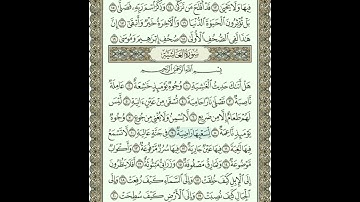 فِيهَا وَلَا يَحْيَىٰ ۝١٣ قَدْ أَفْلَحَ مَن تَزَكَّىٰ ۝١٤ وَذَكَرَ ٱسْمَ رَبِّهِۦ فَصَلَّىٰ ۝١٥
بَلْ تُؤْثِرُونَ ٱلْحَيَوٰةَ ٱلدُّنْيَا ۝١٦ وَٱلْءَاخِرَةُ خَيْرٌ وَأَبْقَىٰٓ ۝١٧ إِنَّ
هَٰذَا لَفِى ٱلصُّحُفِ ٱلْأُولَىٰ ۝١٨ صُحُفِ إِبْرَٰهِيمَ وَمُوسَىٰ ۝١٩
سُورَةُ الغَاشِيَةِ
بِسْمِ ٱللَّهِ ٱلرَّحْمَٰنِ ٱلرَّحِيمِ
هَلْ أَتَىٰكَ حَدِيثُ ٱلْغَٰشِيَةِ ۝١ وُجُوهٌ يَوْمَئِذٍ خَٰشِعَةٌ ۝٢ عَامِلَةٌ
نَّاصِبَةٌ ۝٣ تَصْلَىٰ نَارًا حَامِيَةً ۝٤ تُسْقَىٰ مِنْ عَيْنٍ ءَانِيَةٍ ۝٥ لَّيْسَ
لَهُمْ طَعَامٌ إِلَّا مِن ضَرِيعٍ ۝٦ لَّا يُسْمِنُ وَلَا يُغْنِى مِن جُوعٍ ۝٧ وُجُوهٌ
يَوْمَئِذٍ نَّاعِمَةٌ ۝٨ لِّسَعْيِهَا رَاضِيَةٌ ۝٩ فِى جَنَّةٍ عَالِيَةٍ ۝١٠ لَّا تَسْمَعُ
فِيهَا لَٰغِيَةً ۝١١ فِيهَا عَيْنٌ جَارِيَةٌ ۝١٢ فِيهَا سُرُرٌ مَّرْفُوعَةٌ ۝١٣ وَأَكْوَابٌ
مَّوْضُوعَةٌ ۝١٤ وَنَمَارِقُ مَصْفُوفَةٌ ۝١٥ وَزَرَابِىُّ مَبْثُوثَةٌ ۝١٦ أَفَلَا يَنظُرُونَ
إِلَى ٱلْإِبِلِ كَيْفَ خُلِقَتْ ۝١٧ وَإِلَى ٱلسَّمَآءِ كَيْفَ رُفِعَتْ ۝١٨ وَإِلَى
ٱلْجِبَالِ كَيْفَ نُصِبَتْ ۝١٩ وَإِلَى ٱلْأَرْضِ كَيْفَ سُطِحَتْ ۝٢٠